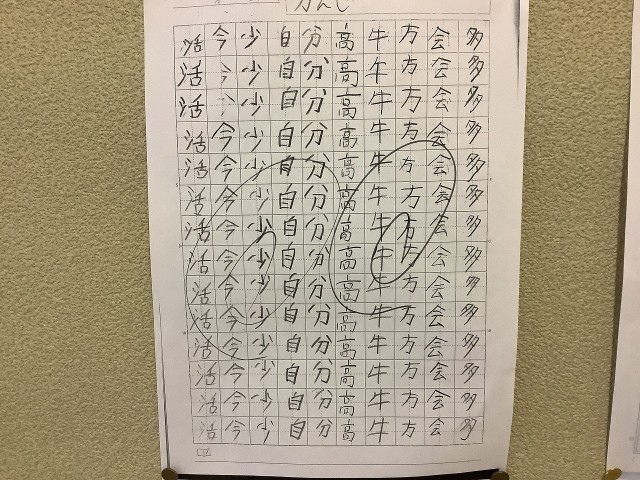 かんじ
多多多多多多多多多多多多多多
会会会会会会会会会会会会会会
方方方方方方方方方方方方方方
牛牛牛牛牛牛牛牛牛牛牛牛牛牛
高高高高高高高高高高高高高高
分分分分分分分分分分分分分分
自自自自自自自自自自自自自自
少少少少少少少少少少少少少少
今今今今今今今今今今今今今今
活活活活活活活活活活活活活活